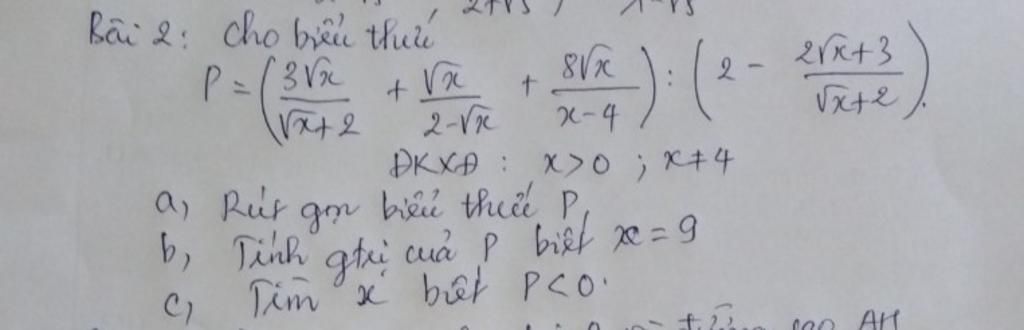 2+√5
Bài 2: Cho biểu thức
P = (3√x/(√x+2) + √x/(2-√x) + 8√x/(x-4)) : (2 - (2√x+3)/(√x+2)).
ĐKXĐ : x>0 ; x≠4
a, Rút gọn biểu thức P,
b, Tính gtrị của P biết x = 9
c, Tìm x biết P<0.
cao AH